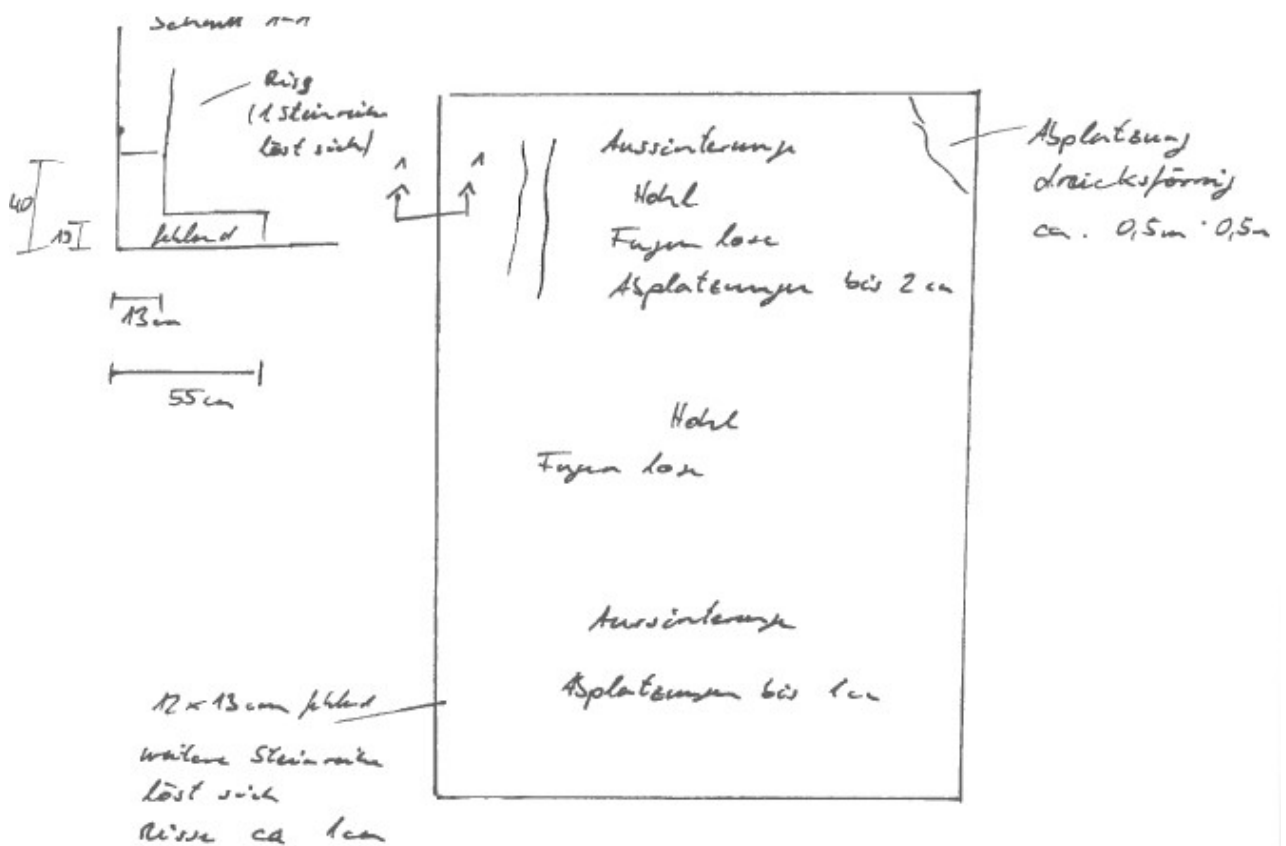 Schnitt 1-1
Riss
(1 Steinreihe
löst sich)
40
13
fehlend
13cm
55cm
1 1
Aussinterunge
Hohl
Fugen lose
Absplatzungen bis 2 cm
Absplatzung
dreicksförmig
ca. 0,5m · 0,5m
Hohl
Fugen lose
Aussinterunge
Absplatzungen bis 1cm
12 x 13 cm fehlend
weitere Steinreihe
löst sich
Risse ca 1cm